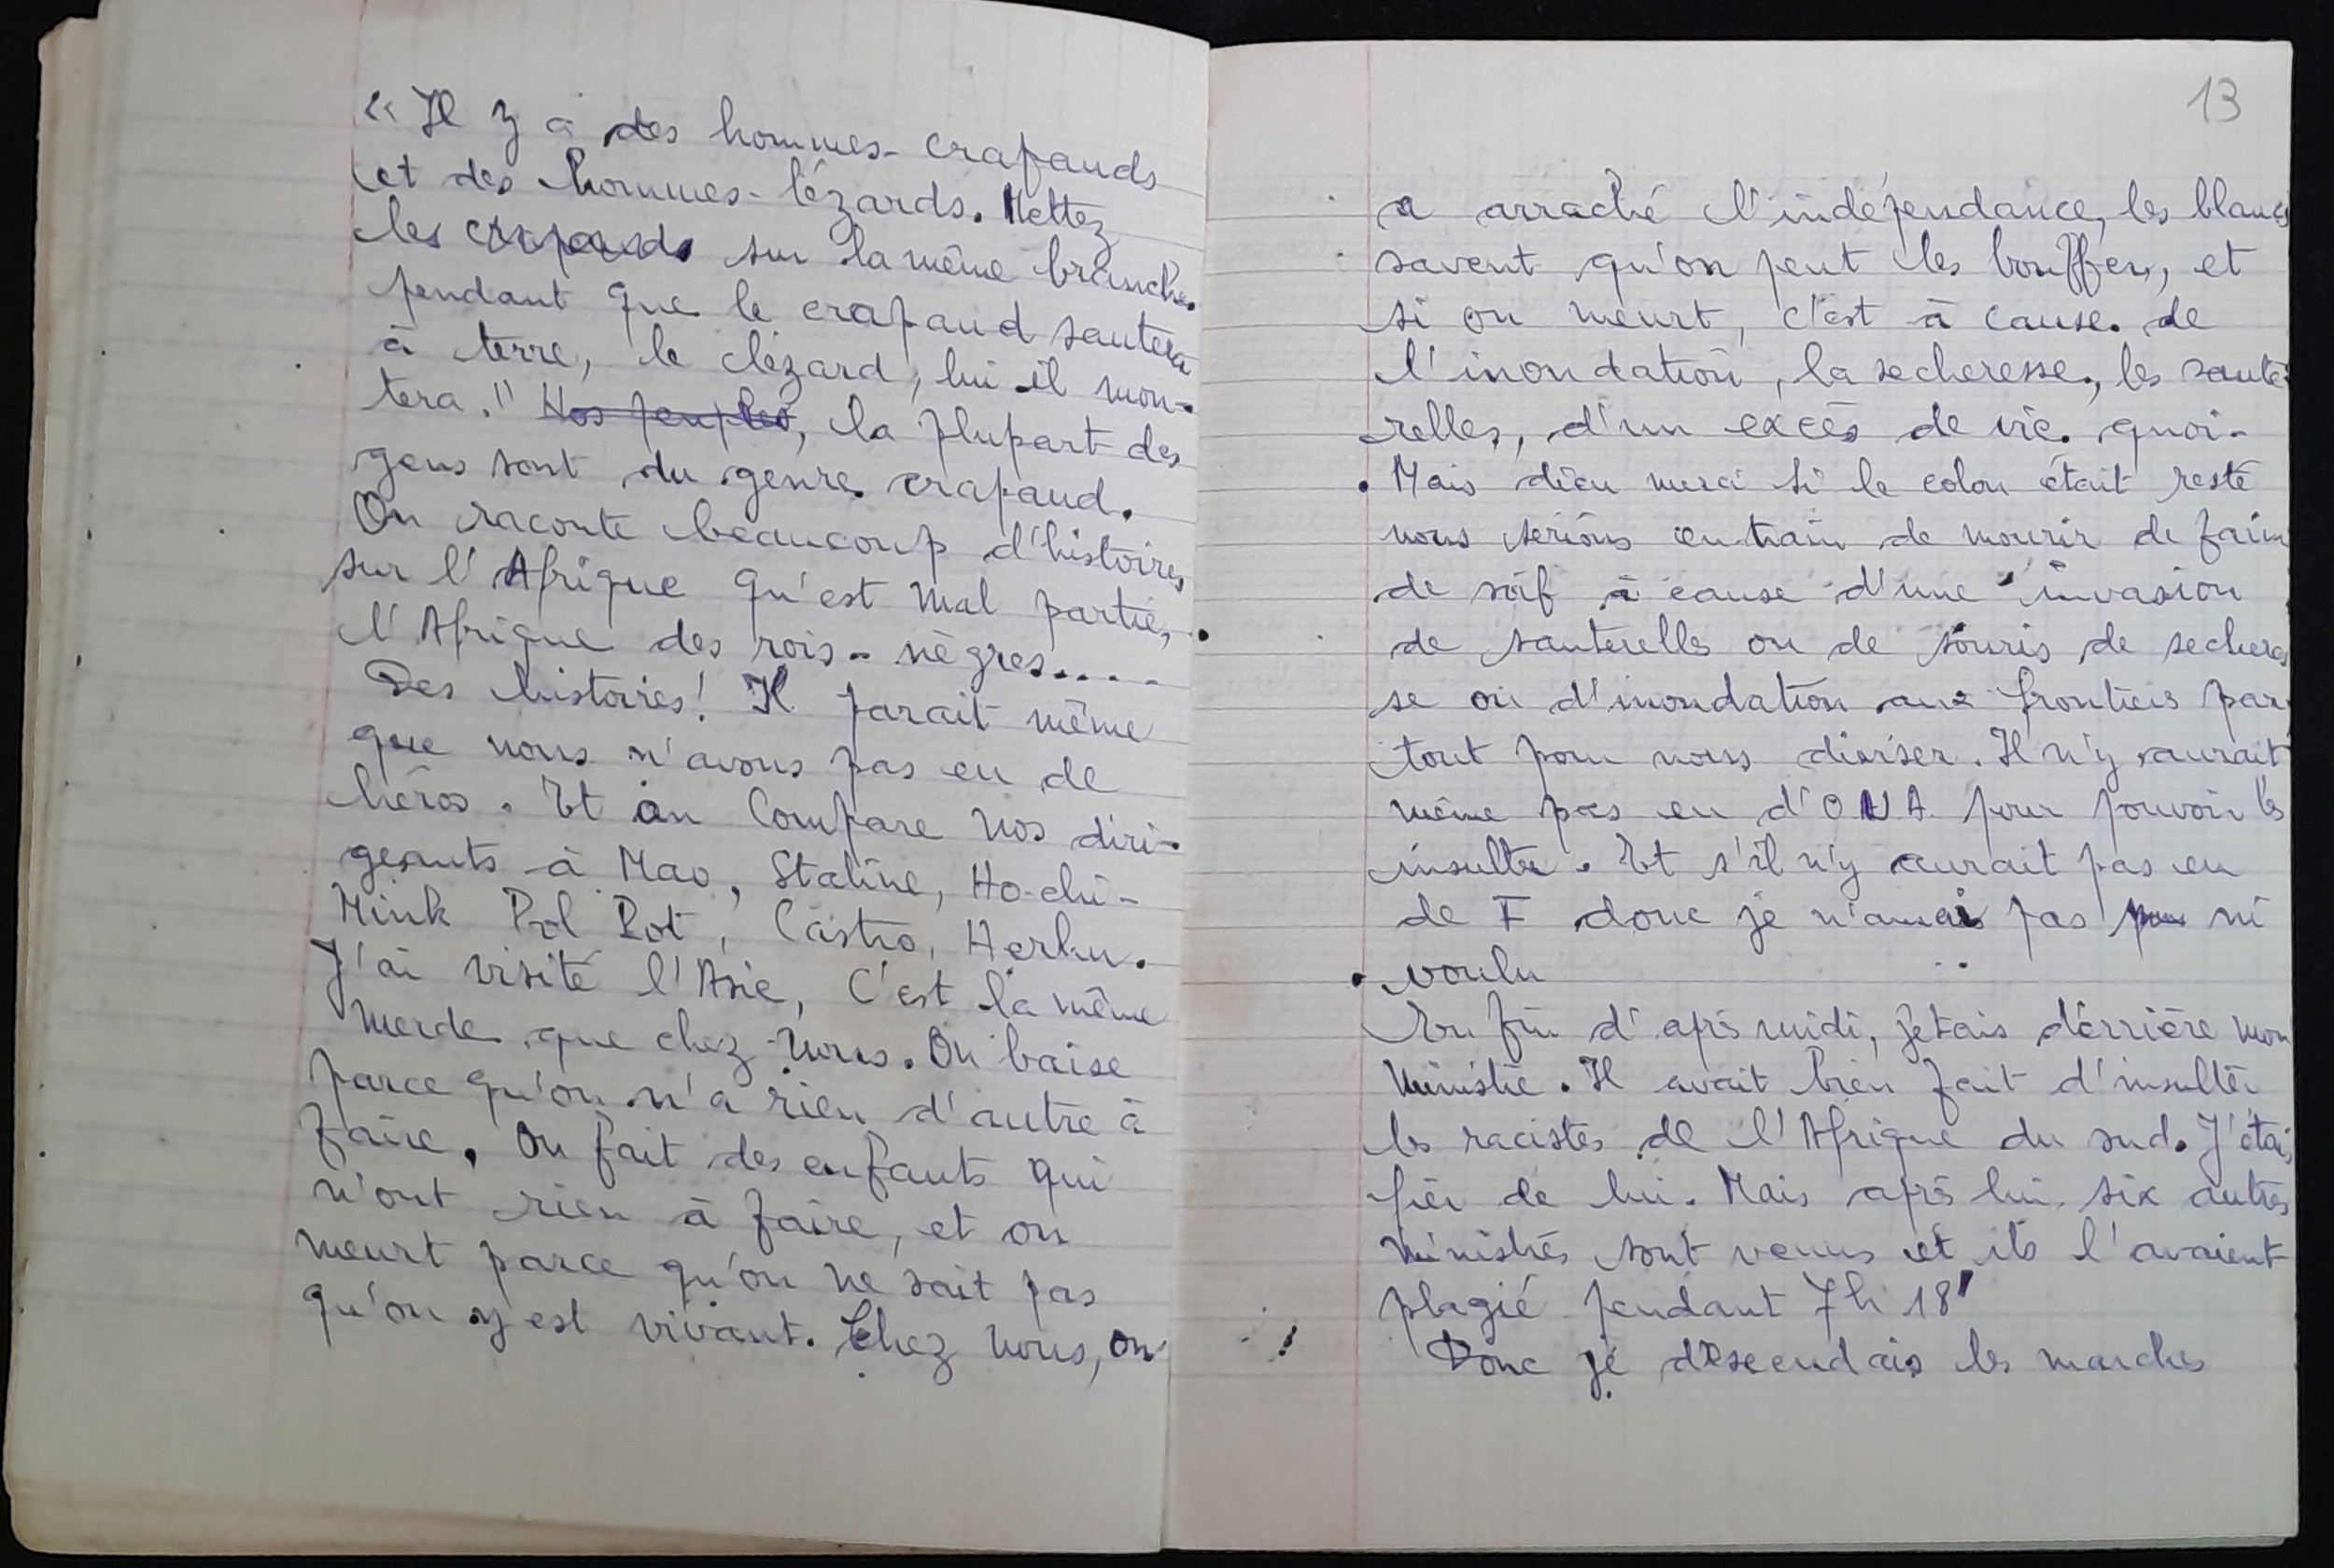 « Il y a des hommes-crapauds
et des hommes-lézards. Mettez
les sur la même branche.
pendant que le crapaud sautera
à terre, le lézard, lui il mon-
tera." Nos peuples, la plupart des
gens sont du genre crapaud.
On raconte beaucoup d'histoires
sur l'Afrique qu'est mal partie,
l'Afrique des rois-nègres....
Des histoires! Il parait même
que nous n'avons pas eu de
héros. Et on compare nos diri-
geants à Mao, Staline, Ho-chi-
Mink Pol Pot, Castro, Herhu.
J'ai visité l'Asie, C'est la même
merde que chez nous. On baise
parce qu'on n'a rien d'autre à
faire. On fait des enfants qui
n'ont rien à faire, et on
meurt parce qu'on ne sait pas
qu'on y est vivant. Chez nous, on
13
a arraché l'indépendance, les blancs
savent qu'on peut les bouffer, et
si on meurt, c'est à cause de
l'inondation, la secheresse, les saute
relles, d'un excès de vie. quoi-
Mais dieu merci si le colon était resté
nous serions en train de mourir de faim
de soif à cause d'une invasion
de sauterelles ou de souris de secheres
se ou d'inondation aux frontiers par
tout pour nous diviser. Il n'y aurait
même pas eu d'O.U.A. pour pouvoir les
insulter. Et s'il n'y aurait pas eu
de F donc je n'aurai pas ni
voulu
En fin d'aprs midi, jetais dérrière mon
ministre. Il avait bien fait d'insulter
les racistes de l'Afrique du sud. J'étai
fier de lui. Mais aprs lui, six autres
ministres sont venus et ils l'avaient
plagié pendant 7h 18'
Donc je descendais les marches